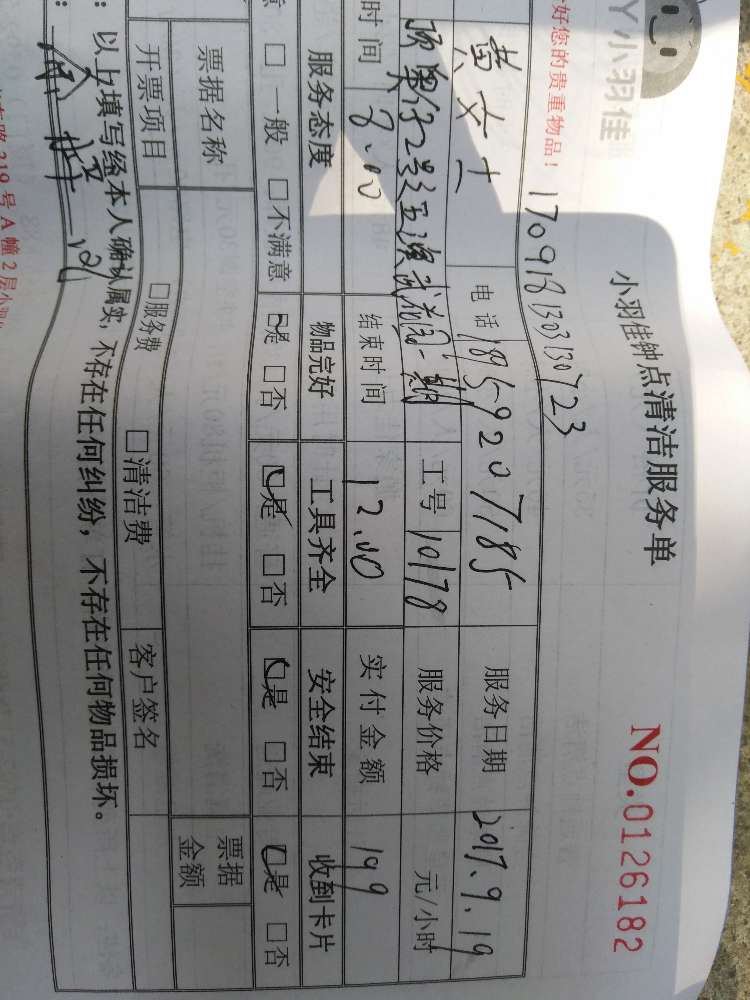 丫小羽佳
小羽佳钟点清洁服务单
NO.0126182
好您的贵重物品！
170918130313０723
黄女士 电话 18959207185 服务日期 2017.9.19
工号 10178 服务价格 元/小时
时间 8.00 结束时间 12.00 实付金额 199
服务态度 物品完好 工具齐全 安全结束 收到卡片
意 □一般 □不满意 □是 □否 □是 □否 □是 □否 □是 □否
票据名称 票据金额
开票项目 □服务费 □清洁费 客户签名
：以上填写经本人确认属实，不存在任何纠纷，不存在任何物品损坏。
路 319 号 A 幢 2 层小羽